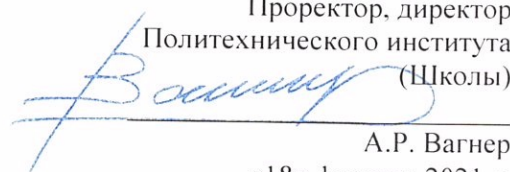 Проректор, директор
Политехнического института
(Школы)
А.Р. Вагнер